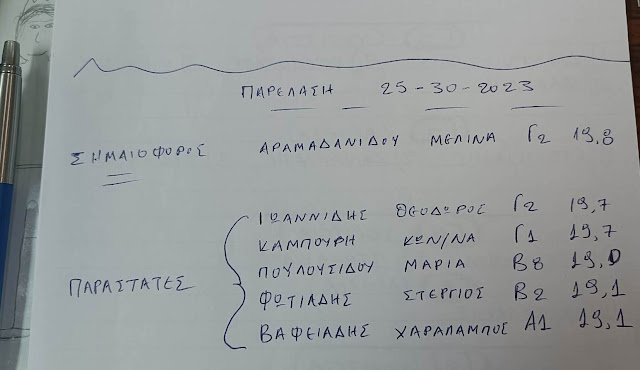 ΠΑΡΕΛΑΣΗ 25-30-2023
ΣΗΜΑΙΟΦΟΡΟΣ ΑΡΑΜΑΔΑΝΙΔΟΥ ΜΕΛΙΝΑ Γ2 19,8
ΙΩΑΝΝΙΔΗΣ ΘΕΟΔΩΡΟΣ Γ2 19,7
ΚΑΜΠΟΥΡΗ ΚΩΝ/ΝΑ Γ1 19,7
ΠΟΥΛΟΥΣΙΔΟΥ ΜΑΡΙΑ Β8 19,0
ΠΑΡΑΣΤΑΤΕΣ ΦΩΤΙΑΔΗΣ ΣΤΕΡΓΙΟΣ Β2 19,1
ΒΑΦΕΙΑΔΗΣ ΧΑΡΑΛΑΜΠΟΣ Α1 19,1